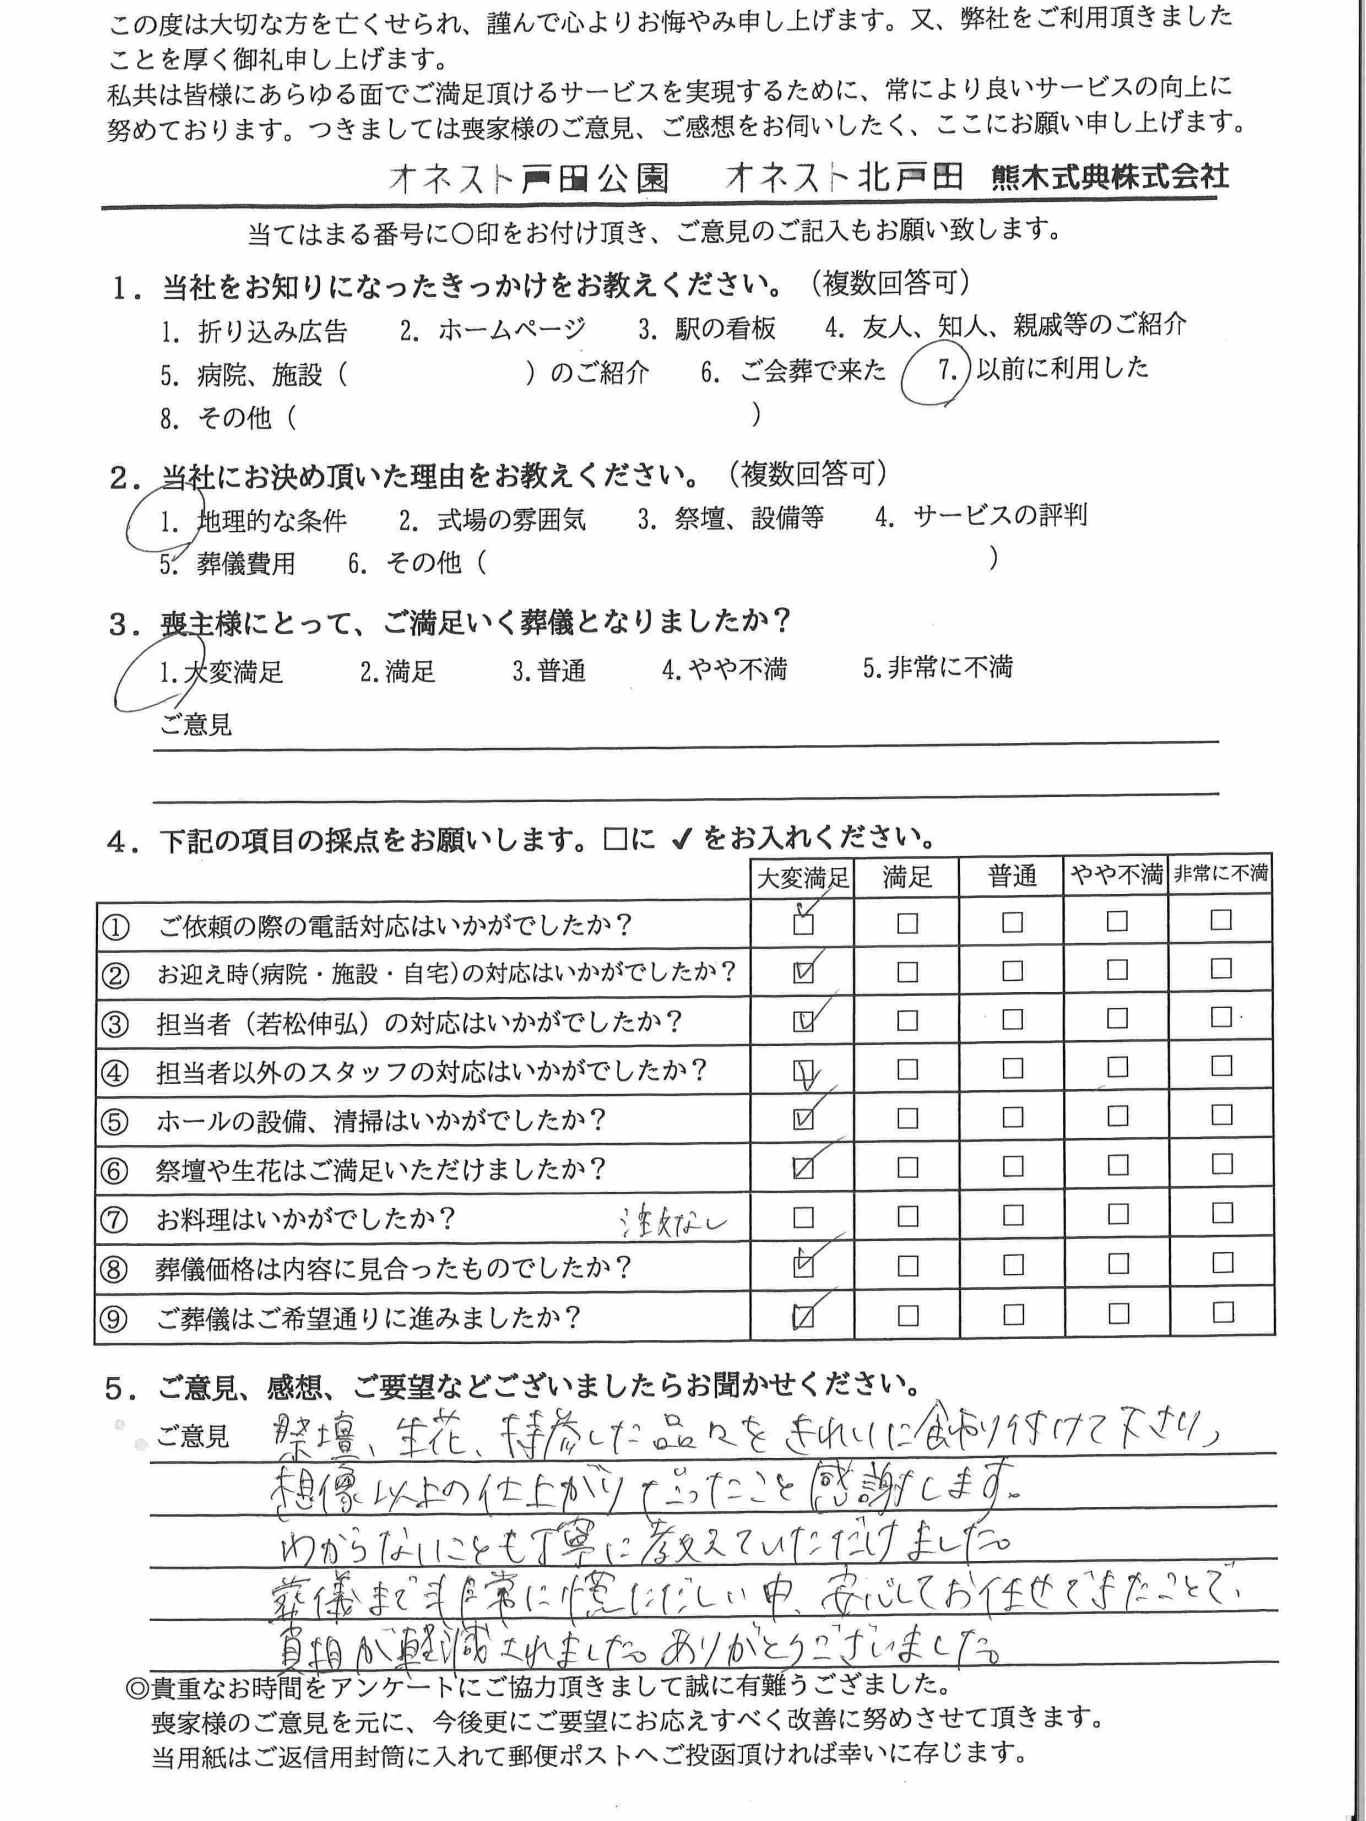 この度は大切な方を亡くせられ、謹んで心よりお悔やみ申し上げます。又、弊社をご利用頂きました
ことを厚く御礼申し上げます。
私共は皆様にあらゆる面でご満足頂けるサービスを実現するために、常により良いサービスの向上に
努めております。つきましては喪家様のご意見、ご感想をお伺いしたく、ここにお願い申し上げます。
オネスト戸田公園　オネスト北戸田　熊木式典株式会社
当てはまる番号に〇印をお付け頂き、ご意見のご記入もお願い致します。
1．当社をお知りになったきっかけをお教えください。（複数回答可）
1. 折り込み広告　2. ホームページ　3. 駅の看板　4. 友人、知人、親戚等のご紹介
5. 病院、施設（　　　）のご紹介　6. ご会葬で来た　7. 以前に利用した
8. その他（　　　）
2．当社にお決め頂いた理由をお教えください。（複数回答可）
1. 地理的な条件　2. 式場の雰囲気　3. 祭壇、設備等　4. サービスの評判
5. 葬儀費用　6. その他（　　　）
3．喪主様にとって、ご満足いく葬儀となりましたか？
1.大変満足　2.満足　3.普通　4.やや不満　5.非常に不満
ご意見
4．下記の項目の採点をお願いします。□に ✓ をお入れください。
大変満足　満足　普通　やや不満　非常に不満
① ご依頼の際の電話対応はいかがでしたか？ ☑ □ □ □ □
② お迎え時(病院・施設・自宅)の対応はいかがでしたか？ ☑ □ □ □ □
③ 担当者（若松伸弘）の対応はいかがでしたか？ ☑ □ □ □ □
④ 担当者以外のスタッフの対応はいかがでしたか？ ☑ □ □ □ □
⑤ ホールの設備、清掃はいかがでしたか？ ☑ □ □ □ □
⑥ 祭壇や生花はご満足いただけましたか？ ☑ □ □ □ □
⑦ お料理はいかがでしたか？ 注文なし □ □ □ □ □
⑧ 葬儀価格は内容に見合ったものでしたか？ ☑ □ □ □ □
⑨ ご葬儀はご希望通りに進みましたか？ ☑ □ □ □ □
5．ご意見、感想、ご要望などございましたらお聞かせください。
ご意見 祭壇、生花、持参した品々をきれいに飾り付けて下さり、
想像以上の仕上がりだったこと感謝します。
わからないことも丁寧に教えていただけました。
葬儀まで非常に慌ただしい中、安心してお任せできたことで、
負担が軽減されました。ありがとうございました。
◎貴重なお時間をアンケートにご協力頂きまして誠に有難うござました。
喪家様のご意見を元に、今後更にご要望にお応えすべく改善に努めさせて頂きます。
当用紙はご返信用封筒に入れて郵便ポストへご投函頂ければ幸いに存じます。